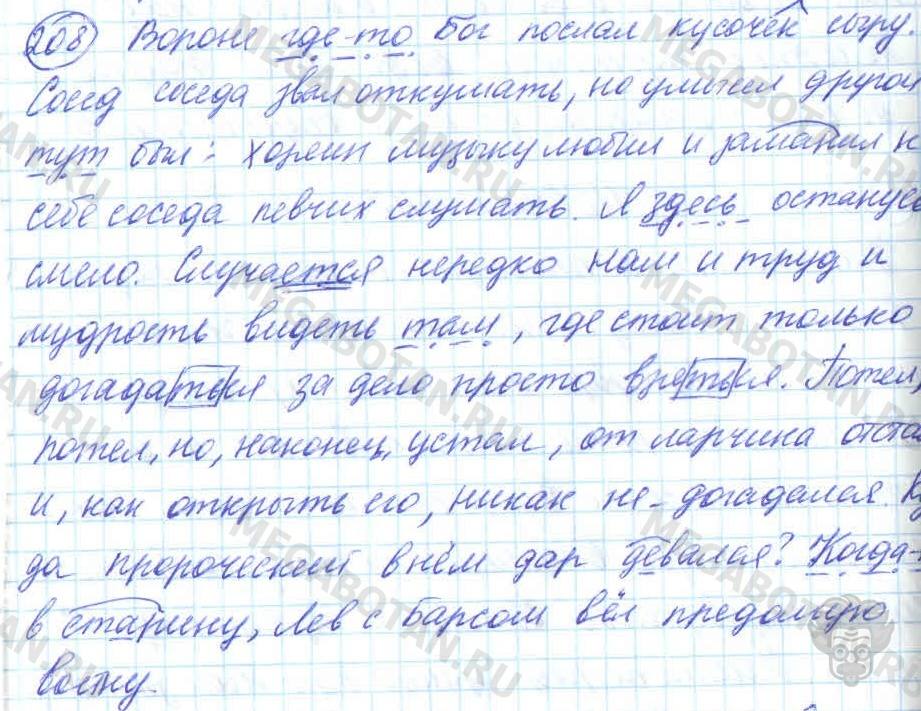 208 Вороне где-то Бог послал кусочек сыру.
Сосед соседа звал откушать, но умысел другой
тут был: хозяин музыку любил и заманил к
себе соседа певчих слушать. Я здесь останусь
смело. Случается нередко нам и труд и
мудрость видеть там, где стоит только
догадаться за дело просто взяться. Потел,
потел, но, наконец, устал, от ларчика отста
и, как открыть его, никак не догадался. Ку
да пророческий в нём дар девался? Когда-
в старину, Лев с Барсом вёл предолгую
войну.
MEGABOTAN.RU